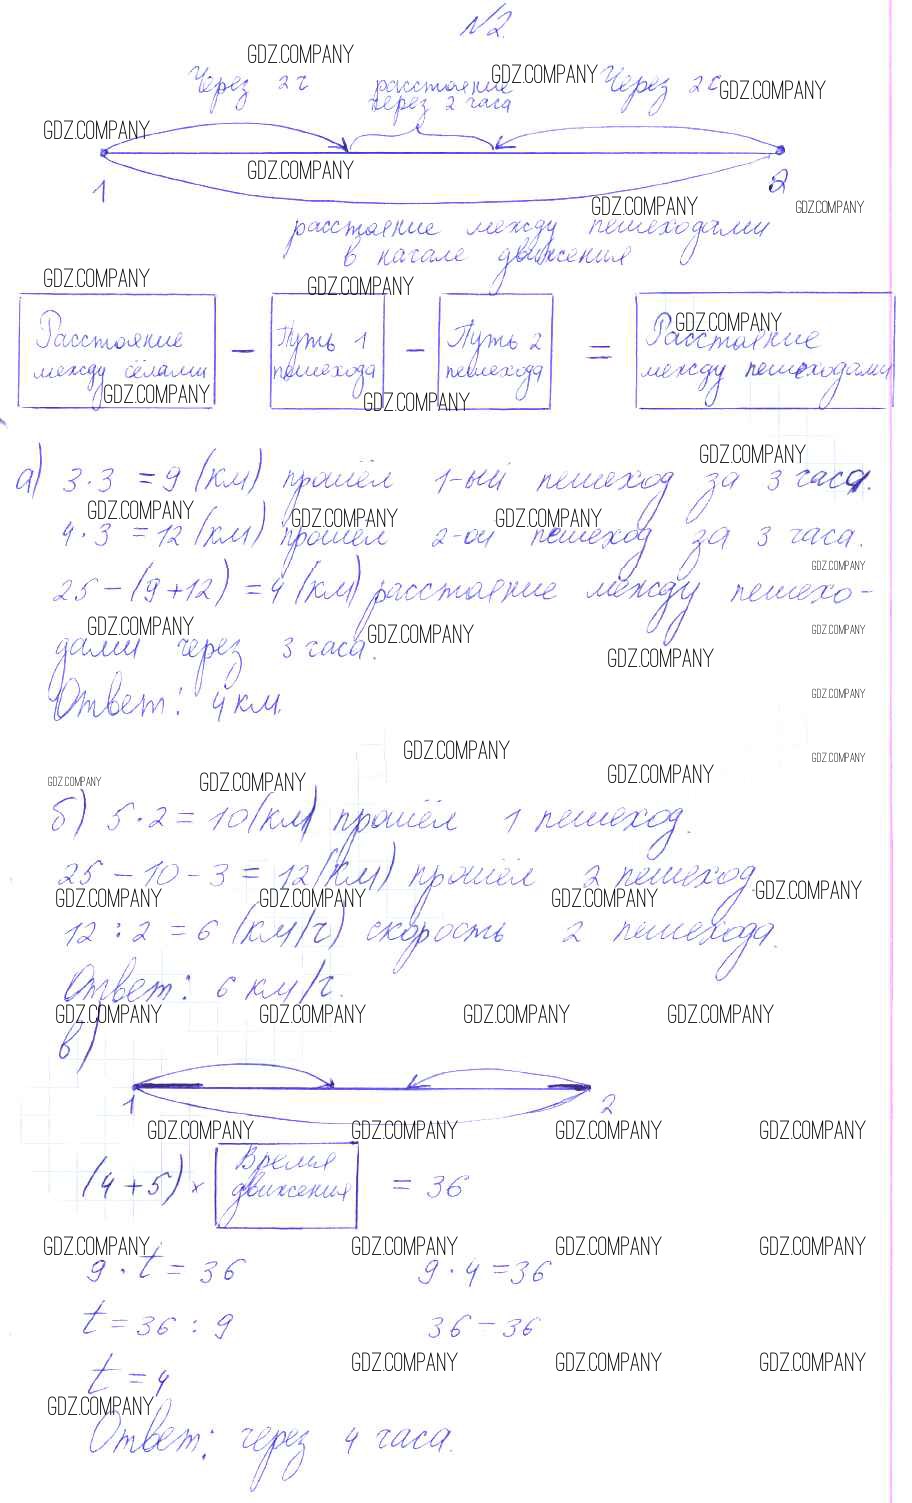 №2.
GDZ.COMPANY
Через 2ч расстояние GDZ.COMPANY Через 2ч GDZ.COMPANY
через 2 часа
GDZ.COMPANY
GDZ.COMPANY
1 2
GDZ.COMPANY GDZ.COMPANY
расстояние между пешеходами
в начале движения
GDZ.COMPANY GDZ.COMPANY
GDZ.COMPANY
Расстояние Путь 1 Путь 2 Расстояние
между сёлами − пешехода − пешехода = между пешеходами
GDZ.COMPANY GDZ.COMPANY
GDZ.COMPANY
а) 3·3 = 9 (км) прошёл 1-ый пешеход за 3 часа.
GDZ.COMPANY GDZ.COMPANY GDZ.COMPANY
4·3 = 12 (км) прошёл 2-ой пешеход за 3 часа.
GDZ.COMPANY
25 − (9+12) = 4 (км) расстояние между пешехо-
GDZ.COMPANY GDZ.COMPANY GDZ.COMPANY
дами через 3 часа.
GDZ.COMPANY
Ответ: 4 км.
GDZ.COMPANY
GDZ.COMPANY GDZ.COMPANY
GDZ.COMPANY GDZ.COMPANY GDZ.COMPANY
б) 5·2 = 10 (км) прошёл 1 пешеход.
25 − 10 − 3 = 12 (км) прошёл 2 пешеход.
GDZ.COMPANY GDZ.COMPANY GDZ.COMPANY GDZ.COMPANY
12 : 2 = 6 (км/ч) скорость 2 пешехода.
Ответ: 6 км/ч.
GDZ.COMPANY GDZ.COMPANY GDZ.COMPANY GDZ.COMPANY
в)
1 2
GDZ.COMPANY GDZ.COMPANY GDZ.COMPANY GDZ.COMPANY
Время
(4+5) × движения = 36
GDZ.COMPANY GDZ.COMPANY GDZ.COMPANY GDZ.COMPANY
9 · t = 36 9 · 4 = 36
t = 36 : 9 36 = 36
GDZ.COMPANY GDZ.COMPANY GDZ.COMPANY
t = 4
GDZ.COMPANY
Ответ: через 4 часа.